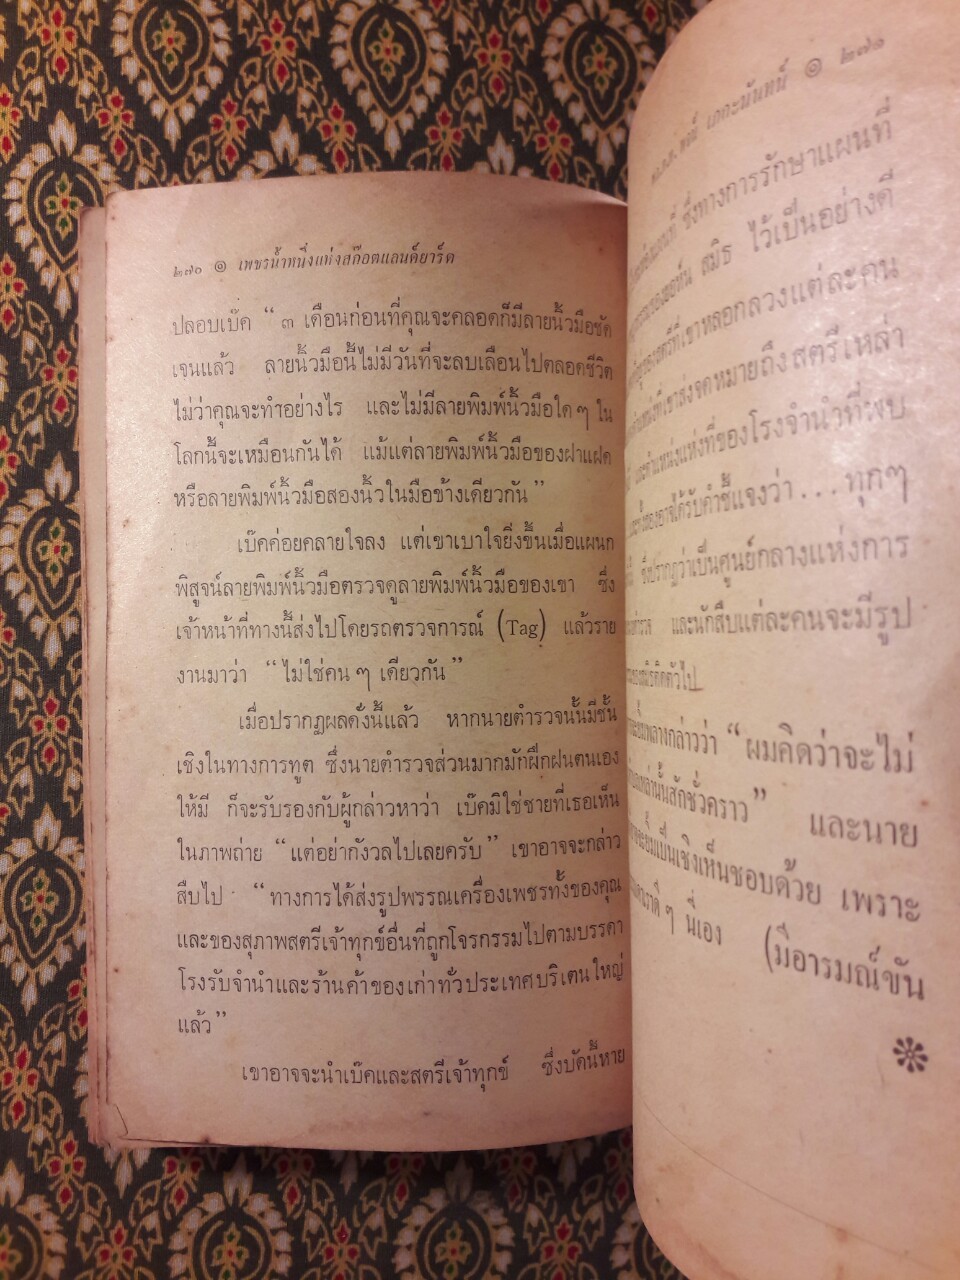 ๒๗๐ ๏ เพชรน้ำหนึ่งแห่งสก๊อตแลนด์ยาร์ด
ปลอบเบ๊ค “ ๓ เดือนก่อนที่คุณจะคลอดก็มีลายนิ้วมือชัด
เจนแล้ว ลายนิ้วมือนี้ไม่มีวันที่จะลบเลือนไปตลอดชีวิต
ไม่ว่าคุณจะทำอย่างไร และไม่มีลายพิมพ์นิ้วมือใด ๆ ใน
โลกนี้จะเหมือนกันได้ แม้แต่ลายพิมพ์นิ้วมือของฝาแฝด
หรือลายพิมพ์นิ้วมือสองนิ้วในมือข้างเดียวกัน ”
เบ๊คค่อยคลายใจลง แต่เขาเบาใจยิ่งขึ้นเมื่อแผนก
พิสูจน์ลายพิมพ์นิ้วมือตรวจดูลายพิมพ์นิ้วมือของเขา ซึ่ง
เจ้าหน้าที่ทางนี้ส่งไปโดยรถตรวจการณ์ (Tag) แล้วราย
งานมาว่า “ ไม่ใช่คน ๆ เดียวกัน ”
เมื่อปรากฏผลดั่งนี้แล้ว หากนายตำรวจนั้นมีชั้น
เชิงในทางการทูต ซึ่งนายตำรวจส่วนมากมักฝึกฝนตนเอง
ให้มี ก็จะรับรองกับผู้กล่าวหาว่า เบ๊คมิใช่ชายที่เธอเห็น
ในภาพถ่าย “ แต่อย่ากังวลไปเลยครับ ” เขาอาจจะกล่าว
สืบไป “ ทางการได้ส่งรูปพรรณเครื่องเพชรทั้งของคุณ
และของสุภาพสตรีเจ้าทุกข์อื่นที่ถูกโจรกรรมไปตามบรรดา
โรงรับจำนำและร้านค้าของเก่าทั่วประเทศบริเตนใหญ่
แล้ว ”
เขาอาจจะนำเบ๊คและสตรีเจ้าทุกข์ ซึ่งบัดนี้หาย
พ.ต.ต. เภกะนันทน์ ๏ ๒๗๑
ซึ่งทางการรักษาแผนที่
สมิธ ไว้เป็นอย่างดี
ของสตรีที่เขาหลอกลวงแต่ละคน
ที่เขาส่งจดหมายถึงสตรีเหล่า
และตำแหน่งแห่งที่ของโรงจำนำที่พบ
อาจได้รับคำชี้แจงว่า . . . ทุกๆ
ซึ่งปรากฏว่าเป็นศูนย์กลางแห่งการ
และนักสืบแต่ละคนจะมีรูป
ติดตัวไป
พลางกล่าวว่า “ ผมคิดว่าจะไม่
เหล่านั้นสักชั่วคราว ” และนาย
จะยิ้มเป็นเชิงเห็นชอบด้วย เพราะ
ๆ นี่เอง (มีอารมณ์ขัน